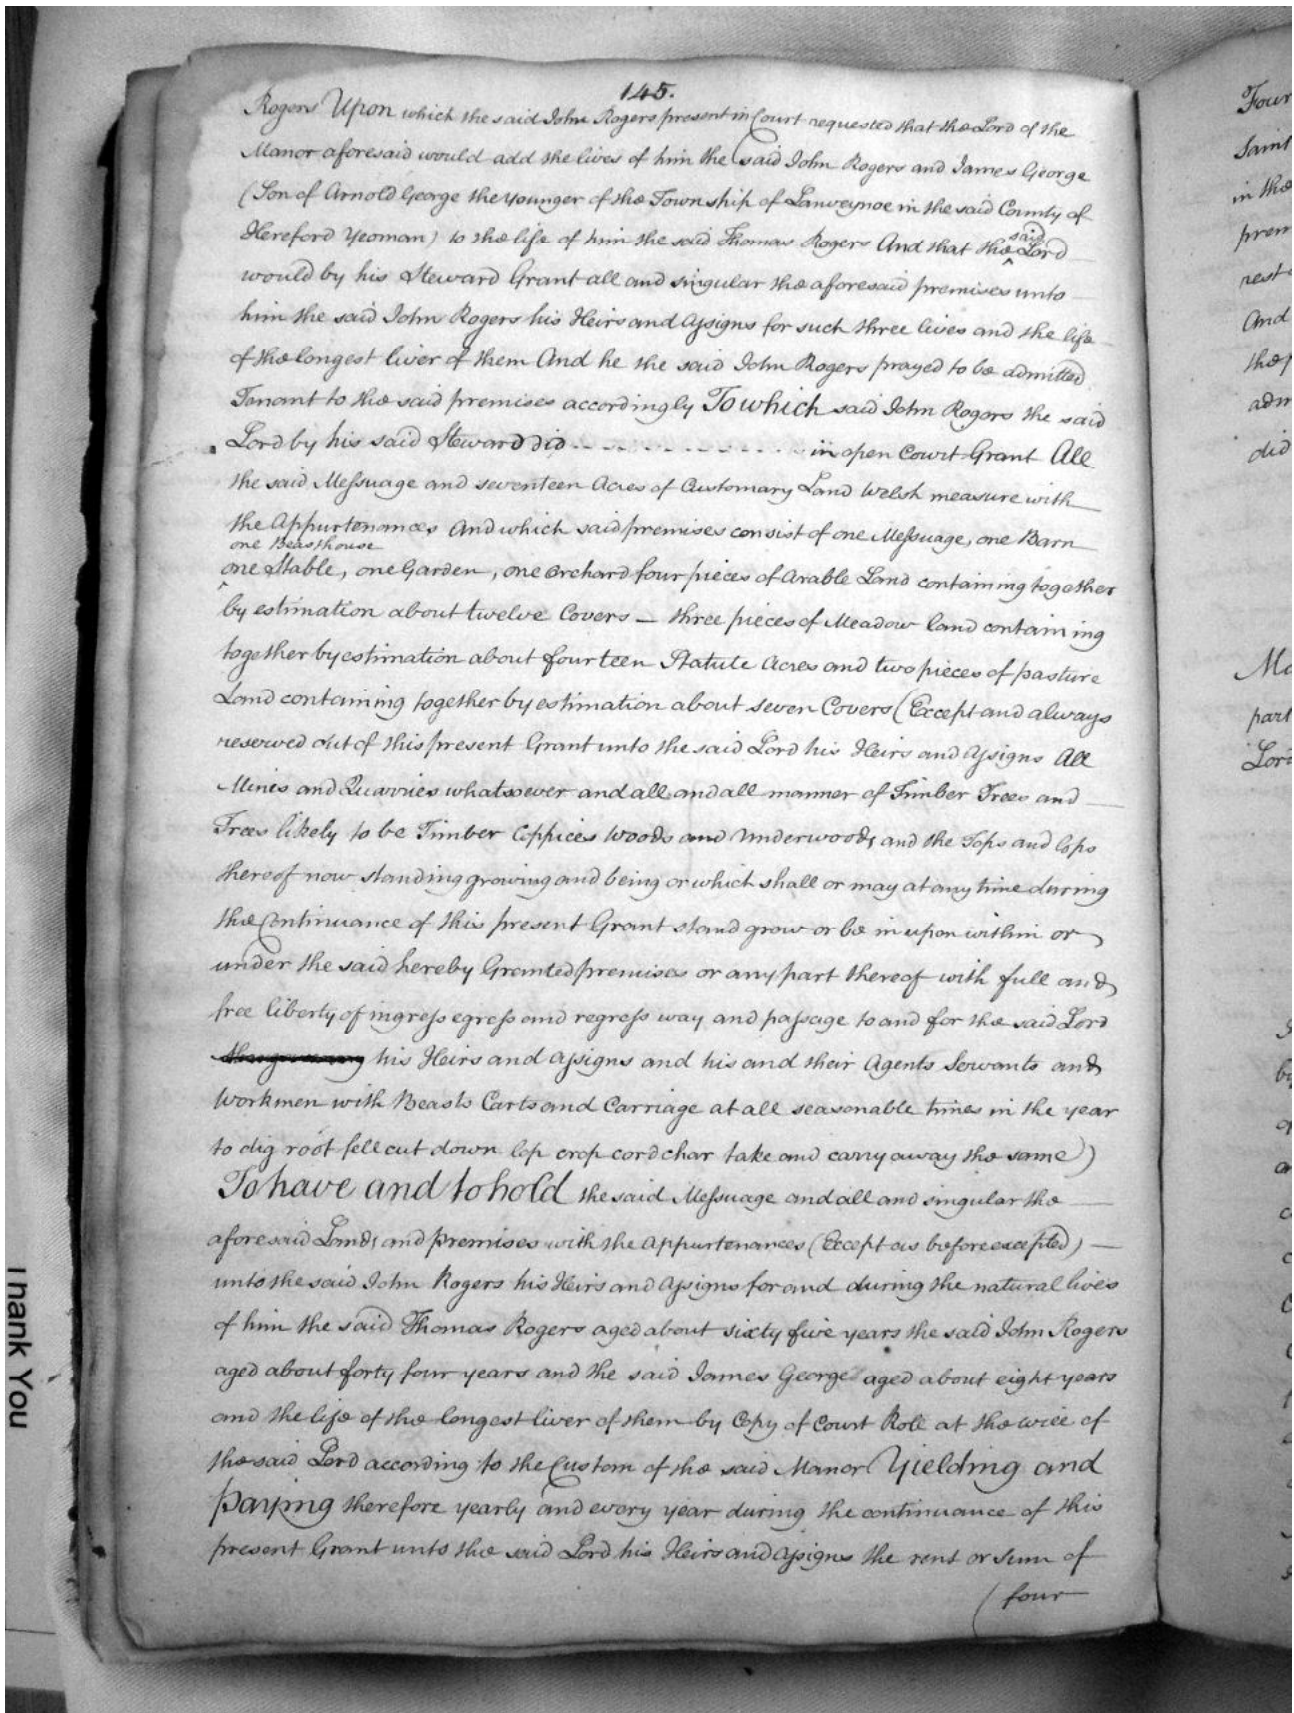 145.
Rogers Upon which the said John Rogers present in Court requested that the Lord of the
Manor aforesaid would add the lives of him the said John Rogers and James George
(Son of Arnold George the younger of the Township of Lanveynoe in the said County of
Hereford Yeoman) to the life of him the said Thomas Rogers And that the said Lord
would by his Steward Grant all and singular the aforesaid premises unto
him the said John Rogers his Heirs and Assigns for such three lives and the life
of the longest liver of them And he the said John Rogers prayed to be admitted
Tenant to the said premises accordingly To which said John Rogers the said
Lord by his said Steward did - - - - - - - - - - - - in open Court Grant All
the said Messuage and seventeen Acres of Customary Land Welsh measure with
the Appurtenances And which said premises consist of one Messuage, one Barn
one Beasthouse
one Stable, one Garden, one Orchard four pieces of Arable Land containing together
by estimation about twelve Covers — three pieces of Meadow land containing
together by estimation about fourteen Statute Acres and two pieces of pasture
Land containing together by estimation about seven Covers (Except and always
reserved out of this present Grant unto the said Lord his Heirs and Assigns All
Mines and Quarries whatsoever and all and all manner of Timber Trees and
Trees likely to be Timber Coppices Woods and Underwoods and the Tops and lops
thereof now standing growing and being or which shall or may at any time during
the Continuance of this present Grant stand grow or be in upon within or
under the said hereby Granted premises or any part thereof with full and
free liberty of ingress egress and regress way and passage to and for the said Lord
his Heirs and Assigns and his and their Agents Servants and
Workmen with Beasts Carts and Carriage at all seasonable times in the year
to dig root fell cut down lop crop cord char take and carry away the same)
To have and to hold the said Messuage and all and singular the
aforesaid Lands and premises with the Appurtenances (Except as before excepted) —
unto the said John Rogers his Heirs and Assigns for and during the natural lives
of him the said Thomas Rogers aged about sixty five years the said John Rogers
aged about forty four years and the said James George aged about eight years
and the life of the longest liver of them by Copy of Court Roll at the will of
the said Lord according to the Custom of the said Manor Yielding and
paying therefore yearly and every year during the continuance of this
present Grant unto the said Lord his Heirs and Assigns the rent or sum of
(four
Four
Saint
in the
prem
rest
And
the p
adm
did
Ma
part
Lord
Thank You